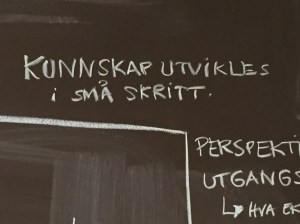 KUNNSKAP UTVIKLES
I SMÅ SKRITT.
PERSPEKTI
UTGANGS
↳ HVA EK